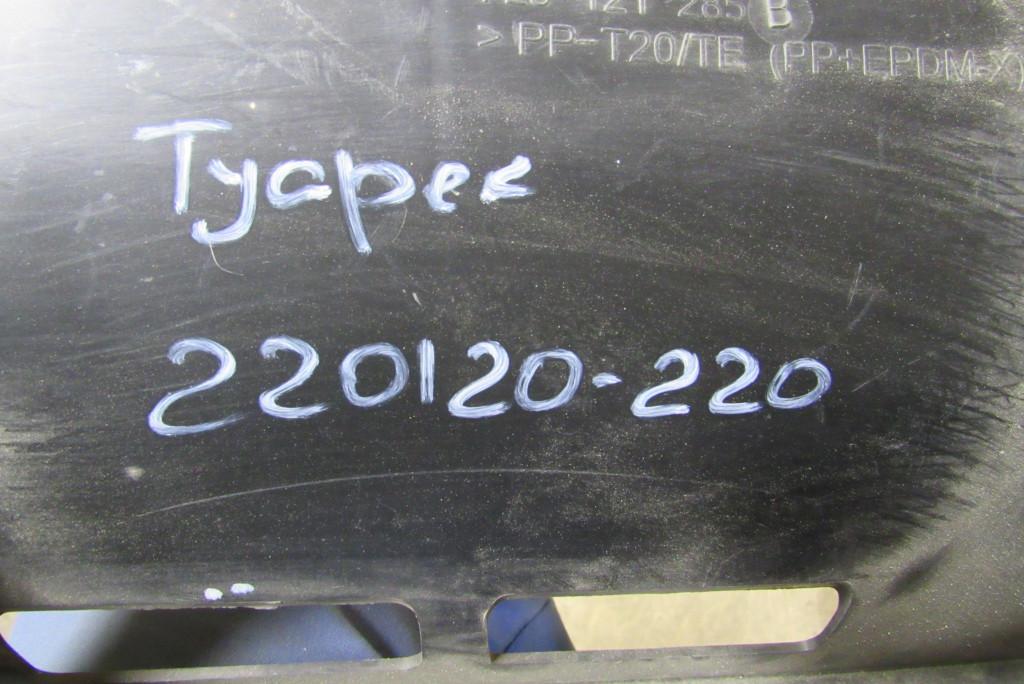 121 285 B
> PP-T20/TE (PP+EPDM-X)
Туарег
220120-220